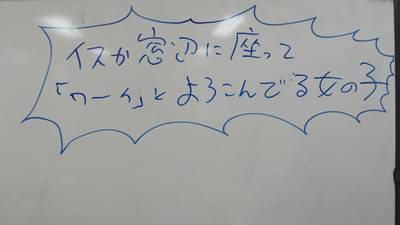 イスが窓辺に座って
「ワーイ」とよろこんでる女の子